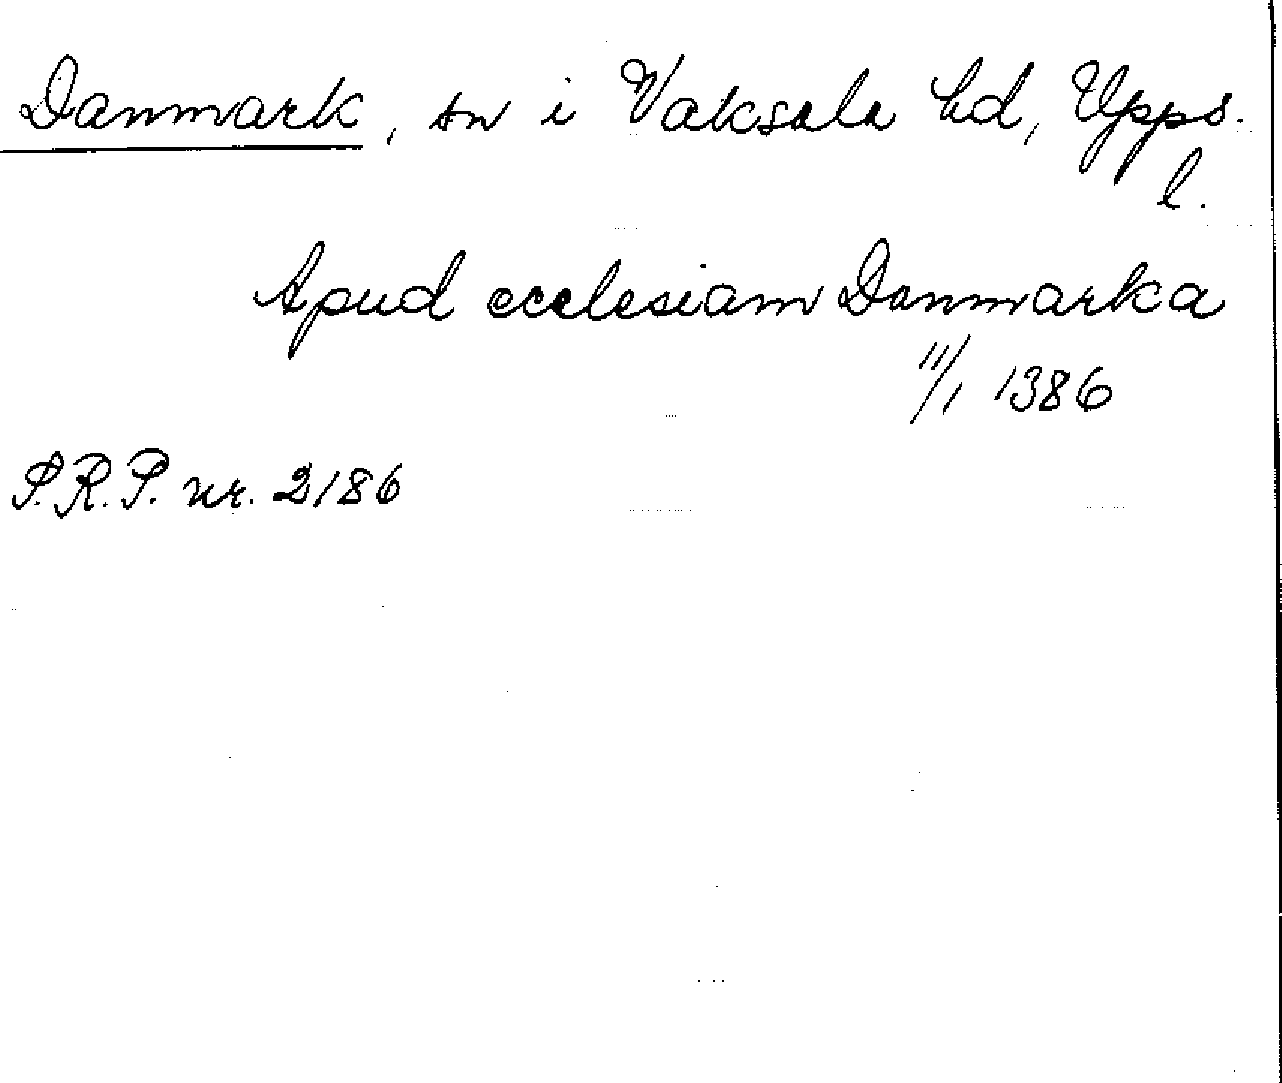 Danmark, sn i Vaksala hd, Upps.
l.
Apud ecclesiam Danmarka
11/1 1386
S.R.P. nr. 2186